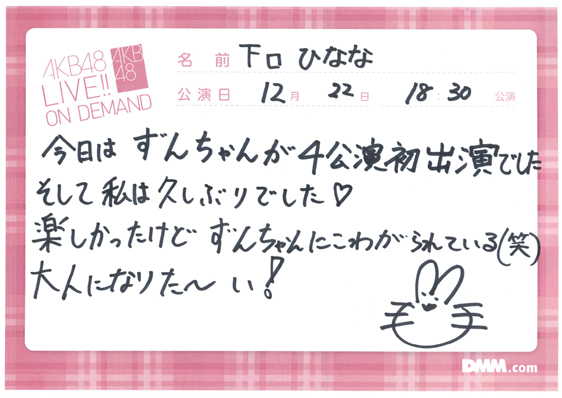 AKB48
LIVE!!
ON DEMAND
AKB
48
名前 下口 ひなな
公演日 12月 22日 18:30 公演
今日は ずんちゃんが 4公演初出演でした
そして 私は久しぶりでした♡
楽しかったけど ずんちゃんにこわがられている(笑)
大人になりた〜 い!
DMM.com